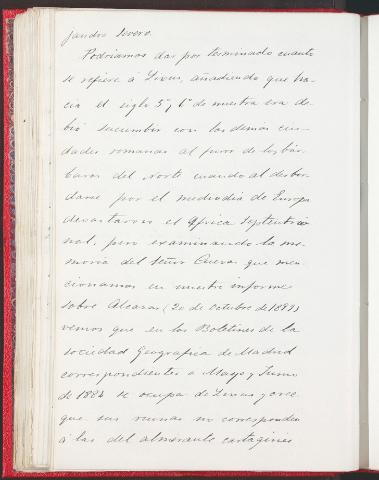 jandro Severo.
Podriamos dar por terminado cuanto
se refiere á Lixus, añadiendo que ha-
cia el siglo 5º, 6º de nuestra era de-
bió sucumbir con las demas ciu-
dades romanas al furor de los bár-
baros del Norte cuando al desbor-
darse por el mediodia de Europa
devastaron el Africa septentrio-
nal, pero examinando la me-
moria del Señor Cuevas que men-
cionamos en nuestro informe
sobre Alcazar (20 de Octubre de 1899)
vemos que en los Boletines de la
sociedad Geografica de Madrid
correspondientes a Mayo y Junio
de 1884 se ocupa de Lixus y cree
que sus ruinas no corresponden
á las del almirante cartagines